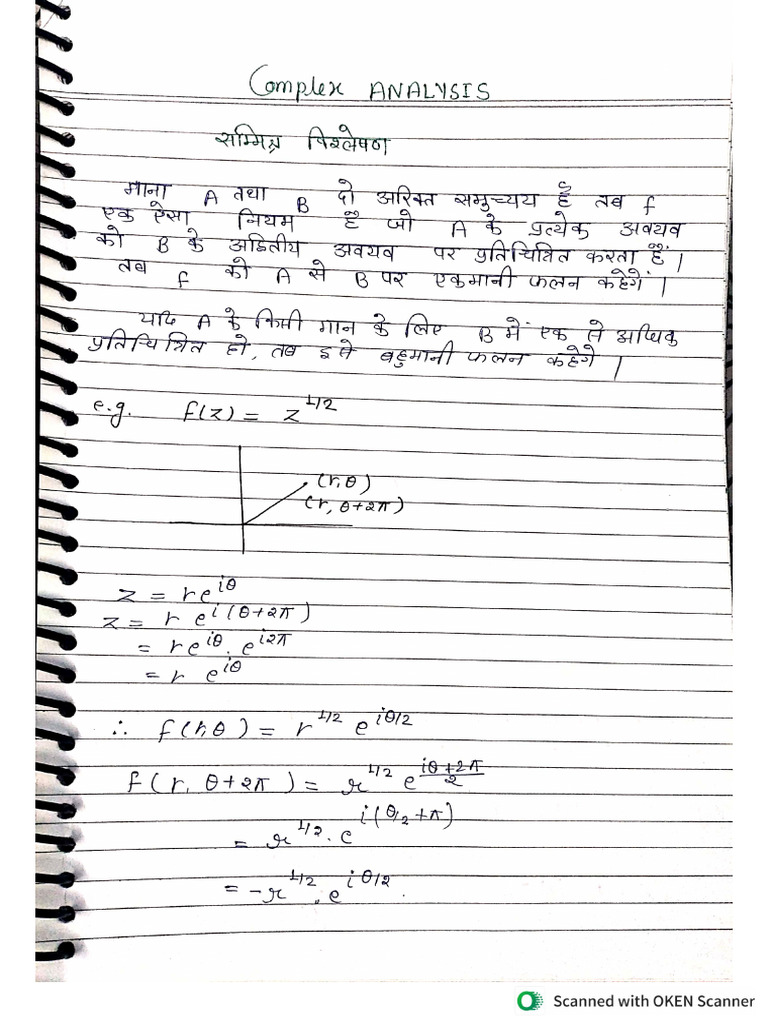 Complex ANALYSIS
सम्मिश्र विश्लेषण
माना A तथा B दो अरिक्त समुच्चय हैं तब f
एक ऐसा नियम है जो A के प्रत्येक अवयव
को B के अद्वितीय अवयव पर प्रतिचित्रित करता हैं।
तब f को A से B पर एकमानी फलन कहेगें।
यदि A के किसी मान के लिए B में एक से अधिक
प्रतिचित्रित हो, तब इसे बहुमानी फलन कहेगे।
e.g. f(z) = z^1/2
(r, θ)
(r, θ+2π)
z = re^iθ
z = r e^i(θ+2π)
= re^iθ . e^i2π
= r e^iθ
∴ f(r,θ) = r^1/2 e^iθ/2
f(r, θ+2π) = r^1/2 e^(iθ+2π)/2
= r^1/2 . e^i(θ/2+π)
= -r^1/2 . e^iθ/2.
Scanned with OKEN Scanner